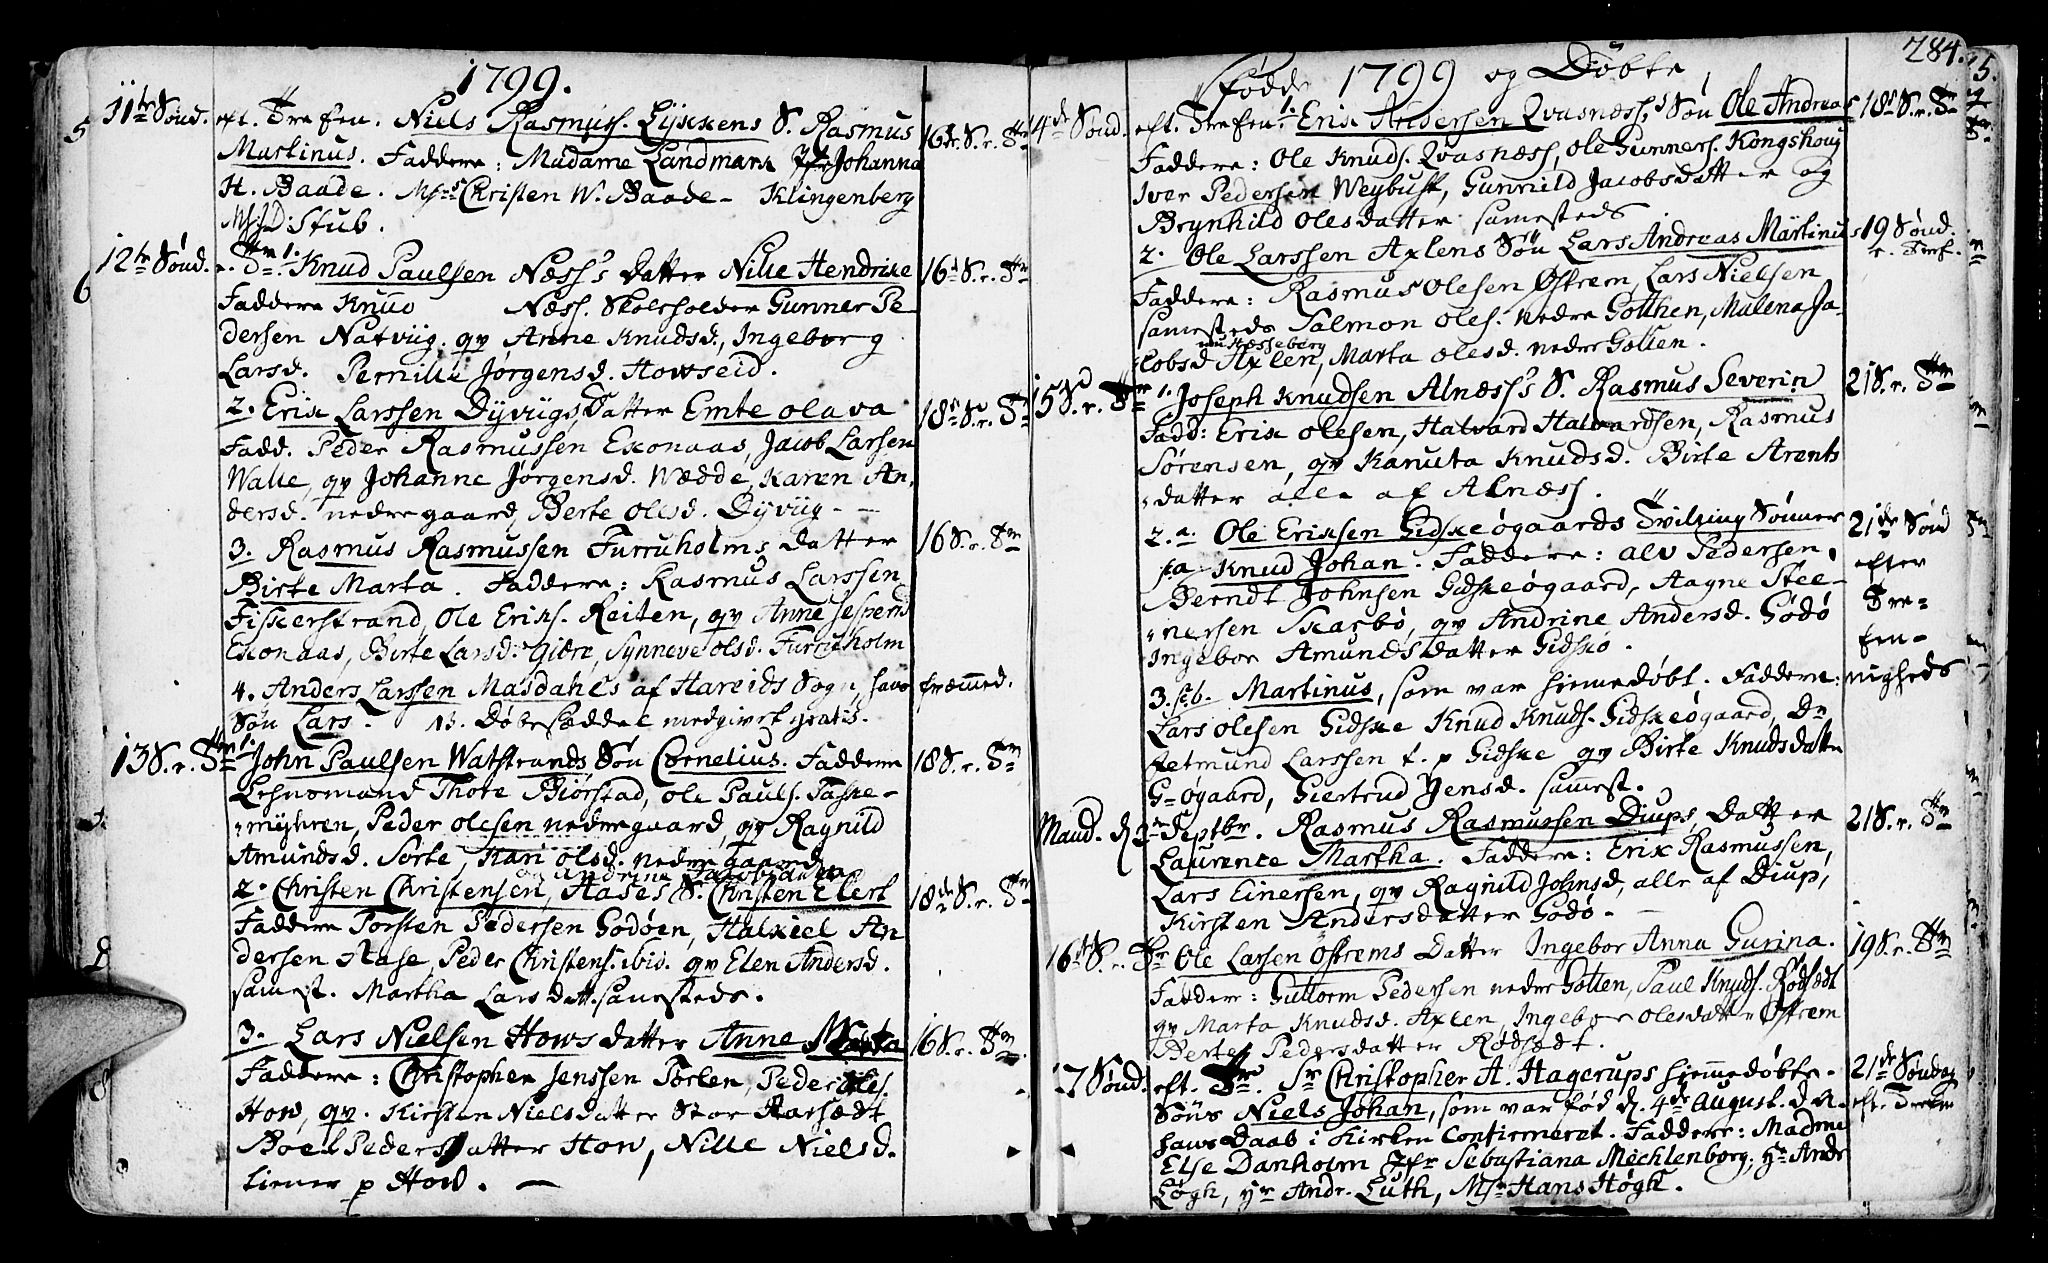 1799.
11te Sønd. eft. Trefen. Niels Rasmuss. Lyxkens S. Rasmus 16de S. r. Tr
Martinus. Faddere: Madame Landmark Jfr Johanna
H. Baade. Msr Christen W. Baade - Klingenberg
Stub.
12te Sønd. r. Tr 1. Knud Paulsen Næss's datter Nille Hendrike 16de S. r. Tr
Faddere Knud Næss. Skoleholder Gunner Pe-
dersen Natviig. qv Anne Knudsd., Ingeborg
Larsd. Pernille Jørgensd. Howseid.
2. Erik Larssen Dyviigs, Datter Emte olava 18de S. r. Tr
Fadd. Peder Rasmussen Exonaas, Jacob Larsen
Walle, qv Johanne Jørgensd. Wædde, Karen An-
dersd. nedregaard, Berte Olesd. Dyviig - -
3. Rasmus Rasmussen Furruholms datter 16 S. r. Tr
Birte Marta. Faddere: Rasmus Larssen
Fiskerstrand, Ole Eriks. Reiten, qv Anne Jespersd
Exonaas, Birte Larsd. Giære, Synneve olsd. Furruholm
4. Anders Larssen Masdahls af Hareids Sogn, hans fræmmed.
Søn Lars. NB. Døbesæddel medgivet gratis.
13 S. r. Tr 1. John Paulsen Watstrands Søn Cornelius. Faddere 18 S. r. Tr
Lehnsmand Thore Biørstad, ole Pauls. Taske-
myhren, Peder olesen nedregaard, qv Ragnild
Amundsd. Sorte, Kari olsd. nedregaard
og Andrine Jacobsdatter
2. Christen Christensen, Hases S. Christen Elert 18de S. r. Tr
Faddere Torsten Pedersen Godøen, Halkiel An
dersen Hase, Peder Christens. ibid. qv Elen Andersd.
samest. Martha Lars datt. samesteds.
3. Lars Nielsen Hows datter Anne Marta 16 S. r. Tr
Faddere: Christopher Jenssen Torlen, Peder Oles.
How, qv. Kirsten Nielsdatter Stor Aarsædt
Boel Peders datter How, Nille Nielsd.
tiener p How. -
284.
Fødde 1799 og Døbte
14de Sønd. eft. Trefen. 1. Erik Andersen Qvasnæss,s Søn Ole Andreas 18 S. r. Tr
Faddere: Ole Knuds. Qvasnæss, ole Gunners. Kongshoug
Iver Pedersen Weybust, Gunnild Jacobsdatter og
Brynhild Olesdatter samesteds
2. Ole Larssen Axlens Søn Lars Andreas Martinus 19 Sønd.
r. Tref.
Faddere: Rasmus Olesen Østrem, Lars Nielsen
samesteds Salmon oles. nedre Gotthen, Malena Ja-
nu Hesseberg
cobsd Axlen, Marta olesd. nedre Gotten.
15 S. r. Tr 1. Joseph Knudsen Alnæss's S. Rasmus Severin 21 S. r. Tr
Fadd: Erik olesen, Halvard Halvardsen, Rasmus
Sørensen, qv Kanuta Knudsd. Birte Arents
datter alle af Alnæss.
2. a. Ole Eriksen Gidskeøgaards Tvilling Sønner 21de Sønd
Knud Johan. Faddere: Alv Pedersen, efter
Berndt Johnsen Gidskeøgaard, Aagne Stee- Tre-
nersen Skarbø, qv Andrine Andersd. Godø een-
Ingebor Amundsdatter Gidskø.
3. b. Martinus, som var hiemedøbt. Faddere: nigheds
Lars olesen Gidske Knud Knuds. Gidskeøgaard, Dn
Aetmund Larssen t. p Gidske qv Birte Knudsdatter
G-øgaard, Giertrud Jensd. samest.
Maud. d 2 Septbr. Rasmus Rasmussen Diups, Datter 21 S. r. Tr
Laurence Martha. Faddere: Erik Rasmussen,
Lars Einersen, qv Ragnild Johnsd, alle af Diup,
Kirsten Andersdatter Godø. -
16de S. r. Tr Ole Larsen Østrems Datter Ingebor Anna Gurina. 19 S. r. Tr
Faddere: Guttorm Pedersen nedre Gotten, Paul Knuds. Rødsædt
qv Marta Knudsd. Axlen, Ingebor olesdatter Østrem
Berte Pedersdatter Rødsædt.
17 Sønd. eft. Tre. Sr Christopher A. Hagerups hiemmedøbte 21de Søndag
Søns Niels Johan, som var fød d. 4de August. da eft. Trefen
hans Daab i Kirken Confirmeret. Faddere: Madme
Else Danholm Jfr Sebastiana Mechlenborg, Hr Andr
Løgh, Hr Andr. Luth, Msr Hans Høgh.